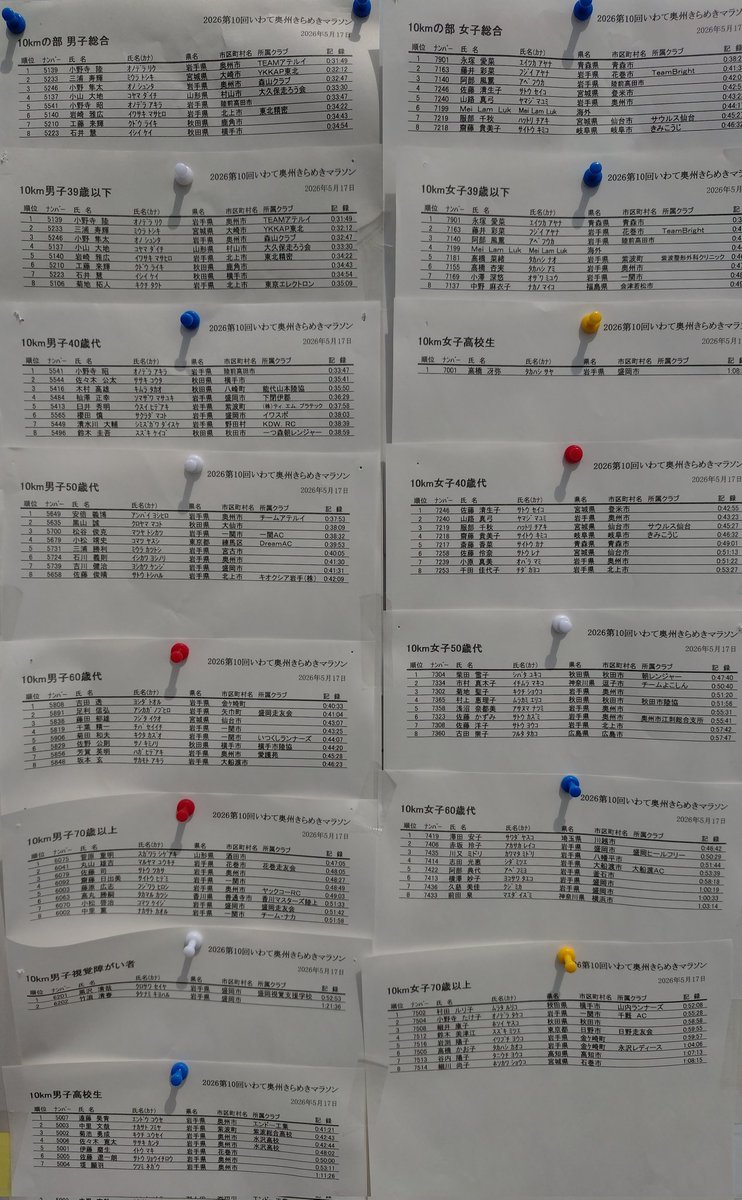 2026第10回いわて奥州きらめきマラソン
10kmの部 男子総合
2026年5月17日
順位 ナンバー 氏 名 氏名(カナ) 県名 市区町村名 所属クラブ 記 録
1 5139 小野寺 陸 オノデラ リク 岩手県 奥州市 TEAMアテルイ 0:31:49
2 5233 三浦 寿輝 ミウラ トシキ 宮城県 大崎市 YKKAP東北 0:32:12
3 5246 小野 隼太 オノ シュンタ 岩手県 奥州市 森山クラブ 0:32:47
4 5137 小山 大地 コヤマ ダイチ 山形県 村山市 大久保走ろう会 0:33:30
5 5541 小野寺 昭 オノデラ アキラ 岩手県 陸前高田市 0:33:47
6 5140 岩崎 雅広 イワサキ マサヒロ 岩手県 北上市 東北精密 0:34:22
7 5210 工藤 来輝 クドウ ライキ 秋田県 鹿角市 0:34:43
8 5223 石井 慧 イシイ ケイ 秋田県 横手市 0:34:54
2026第10回いわて奥州きらめきマラソン
10km男子39歳以下
2026年5月17日
順位 ナンバー 氏 名 氏名(カナ) 県名 市区町村名 所属クラブ 記 録
1 5139 小野寺 陸 オノデラ リク 岩手県 奥州市 TEAMアテルイ 0:31:49
2 5233 三浦 寿輝 ミウラ トシキ 宮城県 大崎市 YKKAP東北 0:32:12
3 5246 小野 隼太 オノ シュンタ 岩手県 奥州市 森山クラブ 0:32:47
4 5137 小山 大地 コヤマ ダイチ 山形県 村山市 大久保走ろう会 0:33:30
5 5140 岩崎 雅広 イワサキ マサヒロ 岩手県 北上市 東北精密 0:34:22
6 5210 工藤 来輝 クドウ ライキ 秋田県 鹿角市 0:34:43
7 5223 石井 慧 イシイ ケイ 秋田県 横手市 0:34:54
8 5106 菊地 拓人 キクチ タクト 岩手県 北上市 東京エレクトロン 0:35:09
2026第10回いわて奥州きらめきマラソン
10km男子40歳代
2026年5月17日
順位 ナンバー 氏 名 氏名(カナ) 県名 市区町村名 所属クラブ 記 録
1 5541 小野寺 昭 オノデラ アキラ 岩手県 陸前高田市 0:33:47
2 5544 佐々木 公太 ササキ コウタ 秋田県 横手市 0:35:41
3 5416 木村 高雄 キムラ タカオ 秋田県 八峰町 能代山本陸協 0:35:50
4 5484 杣澤 正幸 ソマザワ マサユキ 岩手県 盛岡市 下閉伊郡 0:36:29
5 5413 臼井 秀明 ウスイ ヒデアキ 岩手県 紫波町 (株)ティ エム プラテック 0:37:58
6 5565 櫻田 慎 サクラダ マコト 岩手県 盛岡市 イワスポ 0:38:03
7 5449 清水川 大輔 シミズガワ ダイスケ 岩手県 野田村 KDW. RC 0:38:39
8 5496 鈴木 圭吾 スズキ ケイゴ 秋田県 秋田市 一つ森朝レンジャー 0:38:59
2026第10回いわて奥州きらめきマラソン
10km男子50歳代
2026年5月17日
順位 ナンバー 氏 名 氏名(カナ) 県名 市区町村名 所属クラブ 記 録
1 5649 安倍 義博 アンバイ ヨシヒロ 岩手県 奥州市 チームアテルイ 0:37:53
2 5635 黒山 誠 クロヤマ マコト 秋田県 大仙市 0:38:09
3 5700 松谷 俊克 マツヤ トシカツ 岩手県 一関市 一関AC 0:38:32
4 5679 小松 靖史 コマツ ヤスシ 東京都 練馬区 DreamAC 0:39:53
5 5731 三浦 勝利 ミウラ カツトシ 岩手県 宮古市 0:40:05
6 5724 石川 義則 イシカワ ヨシノリ 岩手県 奥州市 0:41:30
7 5739 吉川 健治 ヨシカワ ケンジ 岩手県 盛岡市 0:41:31
8 5658 佐藤 俊晴 サトウ トシハル 岩手県 北上市 キオクシア岩手(株) 0:42:09
2026第10回いわて奥州きらめきマラソン
10km男子60歳代
2026年5月17日
順位 ナンバー 氏 名 氏名(カナ) 県名 市区町村名 所属クラブ 記 録
1 5808 吉田 透 ヨシダ トオル 岩手県 金ケ崎町 0:40:33
2 5891 足利 信弘 アシカガ ノブヒロ 岩手県 矢巾町 盛岡走友会 0:41:04
3 5836 藤田 郁雄 フジタ イクオ 宮城県 仙台市 0:43:07
4 5819 千葉 精一 チバ セイイチ 岩手県 一関市 0:43:25
5 5906 菊田 和夫 キクタ カズオ 岩手県 一関市 いつくしランナーズ 0:44:07
6 5829 佐野 公則 サノ キミノリ 秋田県 横手市 横手市陸協 0:44:20
7 5856 芳賀 英明 ハガ ヒデアキ 岩手県 奥州市 愛護苑 0:45:28
8 5848 坂本 玄 サカモト アキラ 岩手県 大船渡市 0:46:23
2026第10回いわて奥州きらめきマラソン
10km男子70歳以上
2026年5月17日
順位 ナンバー 氏 名 氏名(カナ) 県名 市区町村名 所属クラブ 記 録
1 6075 菅原 重明 スガワラ シゲアキ 山形県 酒田市 0:47:05
2 6041 丸山 雄吉 岩手県 花巻市 花巻走友会 0:48:20
3 6079 佐藤 司 サトウ ツカサ 岩手県 一関市 0:48:27
4 6092 齋藤 日出美 サイトウ ヒデミ 岩手県 盛岡市 0:48:49
5 6003 藤原 広志 フジワラ ヒロシ 岩手県 奥州市 ヤックコーRC 0:49:03
6 6063 高丸 勝嗣 香川県 善通寺市 香川マスターズ陸上 0:51:33
7 6070 小松 啓治 コマツ ケイジ 岩手県 盛岡市 盛岡走友会 0:51:42
8 6002 中里 薫 ナカサト カオル 岩手県 一関市 チーム・ナカ 0:51:58
2026第10回いわて奥州きらめきマラソン
10km男子視覚障がい者
2026年5月17日
順位 ナンバー 氏 名 氏名(カナ) 県名 市区町村名 所属クラブ 記 録
1 6201 黒沢 清哉 クロサワ セイヤ 岩手県 盛岡市 盛岡視覚支援学校 0:52:53
2 6202 竹浜 清春 岩手県 盛岡市 1:21:36
2026第10回いわて奥州きらめきマラソン
10km男子高校生
2026年5月17日
順位 ナンバー 氏 名 氏名(カナ) 県名 市区町村名 所属クラブ 記 録
1 5007 遠藤 昊青 エンドウ コウセイ 岩手県 奥州市 エンドー工業 0:41:21
2 5003 中里 文哉 ナカサト フミヤ 岩手県 紫波町 紫波総合高校 0:42:43
3 5002 菊池 勇成 キクチ ユウセイ 岩手県 奥州市 水沢高校 0:42:44
4 5008 佐々木 寛太 ササキ カンタ 岩手県 奥州市 水沢高校 0:48:02
5 5001 伊藤 磨生 イトウ マキ 岩手県 花巻市 0:50:00
6 5005 佐藤 遼一朗 サトウ リョウイチロウ 岩手県 奥州市 0:53:11
7 5004 岩手県 奥州市 1:11:26
2026第10回いわて奥州きらめきマラソン
10kmの部 女子総合
2026年5月17日
順位 ナンバー 氏 名 氏名(カナ) 県名 市区町村名 所属クラブ 記 録
1 7901 永塚 愛菜 エイツカ アヤナ 青森県 青森市
2 7163 藤井 彩菜 フジイ アヤナ 岩手県 花巻市 TeamBright
3 7140 阿部 風薫 アベ フウカ 岩手県 陸前高田市
4 7246 佐藤 清生子 サトウ セイコ 宮城県 登米市
5 7240 山路 真弓 ヤマジ マユミ 岩手県 奥州市
6 7199 Mei Lam Luk Mei Lam Luk 海外
7 7219 服部 千秋 ハットリ チアキ 宮城県 仙台市 サウルス仙台
8 7218 齋藤 貴美子 サイトウ キミコ 岐阜県 岐阜市 きみこうじ 0:46:32
2026第10回いわて奥州きらめきマラソン
10km女子39歳以下
2026年5月17日
順位 ナンバー 氏 名 氏名(カナ) 県名 市区町村名 所属クラブ 記 録
1 7901 永塚 愛菜 エイツカ アヤナ 青森県 青森市
2 7163 藤井 彩菜 フジイ アヤナ 岩手県 花巻市 TeamBright
3 7140 阿部 風薫 アベ フウカ 岩手県 陸前高田市
4 7199 Mei Lam Luk Mei Lam Luk 海外
5 7181 高橋 菜緒 タカハシ ナオ 岩手県 紫波町 紫波整形外科クリニック
6 7155 高橋 杏実 タカハシ アミ 岩手県 奥州市
7 7169 小澤 深悠 オザワ ミユウ 岩手県 一関市
8 7137 中野 麻衣子 ナカノ マイコ 福島県 会津若松市
2026第10回いわて奥州きらめきマラソン
10km女子高校生
2026年5月17日
順位 ナンバー 氏 名 氏名(カナ) 県名 市区町村名 所属クラブ 記 録
1 7001 高橋 冴弥 タカハシ サヤ 岩手県 盛岡市
2026第10回いわて奥州きらめきマラソン
10km女子40歳代
2026年5月17日
順位 ナンバー 氏 名 氏名(カナ) 県名 市区町村名 所属クラブ 記 録
1 7246 佐藤 清生子 サトウ セイコ 宮城県 登米市 0:42:55
2 7240 山路 真弓 ヤマジ マユミ 岩手県 奥州市 0:43:23
3 7219 服部 千秋 ハットリ チアキ 宮城県 仙台市 サウルス仙台 0:45:27
4 7218 齋藤 貴美子 サイトウ キミコ 岐阜県 岐阜市 きみこうじ 0:46:32
5 7217 斎藤 香菜 サイトウ カナ 青森県 青森市 0:49:01
6 7258 佐藤 伶奈 サトウ レナ 宮城県 仙台市 0:51:13
7 7239 小原 真美 オバラ マミ 岩手県 奥州市 0:51:22
8 7253 千田 佳代子 チダ カヨコ 岩手県 北上市 0:53:27
2026第10回いわて奥州きらめきマラソン
10km女子50歳代
2026年5月17日
順位 ナンバー 氏 名 氏名(カナ) 県名 市区町村名 所属クラブ 記 録
1 7304 柴田 雪子 シバタ ユキコ 秋田県 秋田市 朝レンジャー 0:47:40
2 7334 市村 真木子 イチムラ マキコ 神奈川県 逗子市 チームよこしん 0:50:40
3 7302 菊地 聖子 キクチ ショウコ 岩手県 奥州市 0:51:20
4 7365 村上 恵理子 ムラカミ エリコ 秋田県 秋田市 秋田市陸協 0:51:58
5 7358 浅沼 奈都美 アサヌマ ナツミ 岩手県 奥州市 0:55:31
6 7323 佐藤 かずみ サトウ カズミ 岩手県 奥州市 奥州市江刺総合支所 0:55:41
7 7308 佐藤 洋子 サトウ ヨウコ 岩手県 北上市 0:57:42
8 7360 古田 奈子 フルタ タカコ 広島県 広島市 0:57:47
2026第10回いわて奥州きらめきマラソン
10km女子60歳代
2026年5月17日
順位 ナンバー 氏 名 氏名(カナ) 県名 市区町村名 所属クラブ 記 録
1 7419 澤田 安子 サワダ ヤスコ 埼玉県 川越市 0:48:42
2 7406 赤坂 玲子 アカサカ レイコ 岩手県 盛岡市 盛岡ヒールフリー 0:50:29
3 7435 川又 ミドリ カワマタ ミドリ 岩手県 八幡平市 0:51:44
4 7414 志田 光恵 シダ ミツエ 岩手県 大船渡市 大船渡AC 0:53:39
5 7422 阿部 典代 アベ フミヨ 岩手県 釜石市 0:58:18
6 7413 横澤 妙子 ヨコサワ タエコ 岩手県 盛岡市 0:59:38
7 7436 久慈 美佳 クジ ミカ 岩手県 盛岡市 1:00:33
8 7433 前田 泉 マエダ イズミ 神奈川県 横浜市 1:03:14
2026第10回いわて奥州きらめきマラソン
10km女子70歳以上
2026年5月17日
順位 ナンバー 氏 名 氏名(カナ) 県名 市区町村名 所属クラブ 記 録
1 7502 村田 ルリ子 ムラタ ルリコ 秋田県 横手市 山内ランナーズ 0:52:08
2 7504 小野寺 たけ子 オノデラ タケコ 岩手県 一関市 千厩 AC 0:55:28
3 7508 細井 康子 ホソイ ヤスコ 秋田県 秋田市 0:58:56
4 7510 鈴木 美津江 スズキ ミツエ 東京都 日野市 日野走友会 0:59:55
5 7516 岩渕 陽子 イワブチ ヨウコ 岩手県 金ケ崎町 0:59:57
6 7505 高橋 かお子 タカハシ カオコ 岩手県 金ケ崎町 永沢レディース 1:04:06
7 7513 谷内 陽子 タニウチ ヨウコ 高知県 高知市 1:07:13
8 7514 細川 尚子 ホソカワ ショウコ 宮城県 石巻市 1:08:15